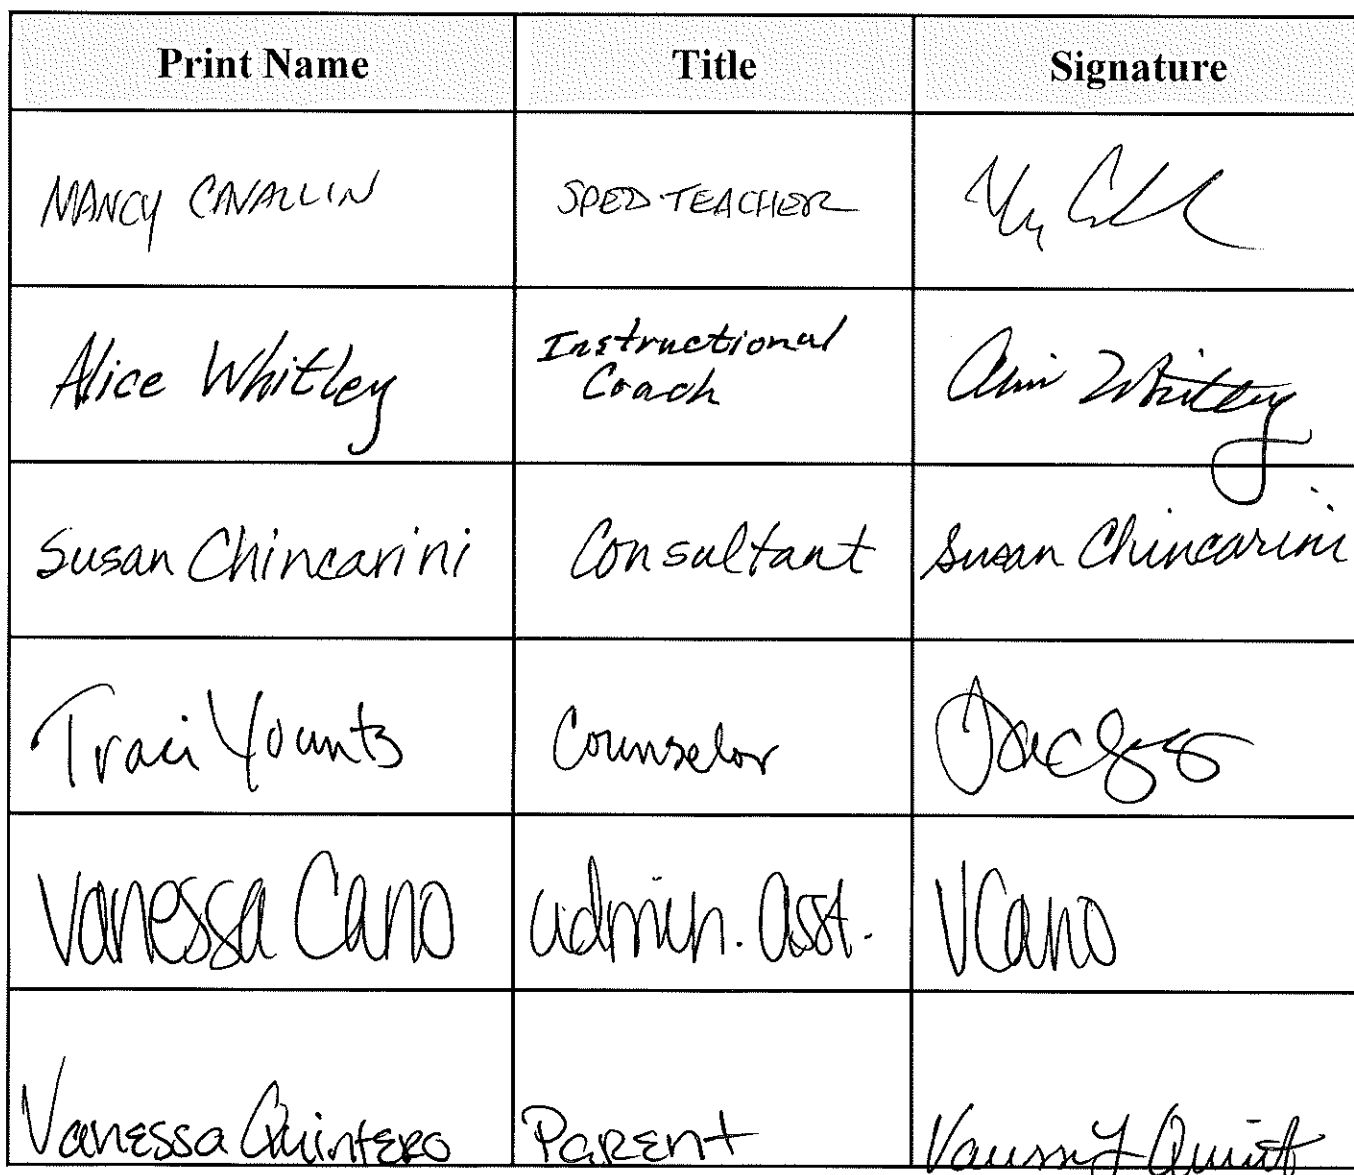 Print Name Title Signature
NANCY CAVALLIN SPED TEACHER
Alice Whitley Instructional Whitley
Coach
Susan Chincarini Consultant Susan Chincarini
Traci Younts Counselor
Vanessa Cano admin. asst. VCano
Vanessa Quintero Parent